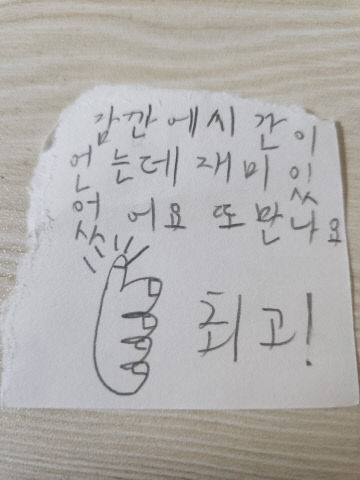 잠깐에시간이
언는데 재미있
었어요 또만나요
최고!